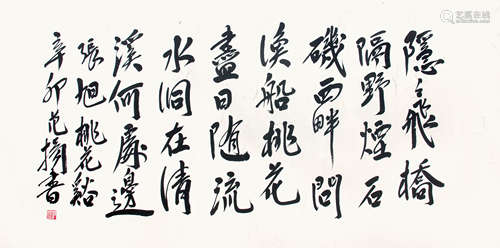 隱々飛橋
隔野煙石
磯西畔問
漁船桃花
盡日隨流
水洞在清
溪何處邊
張旭桃花谿
辛卯范揚書